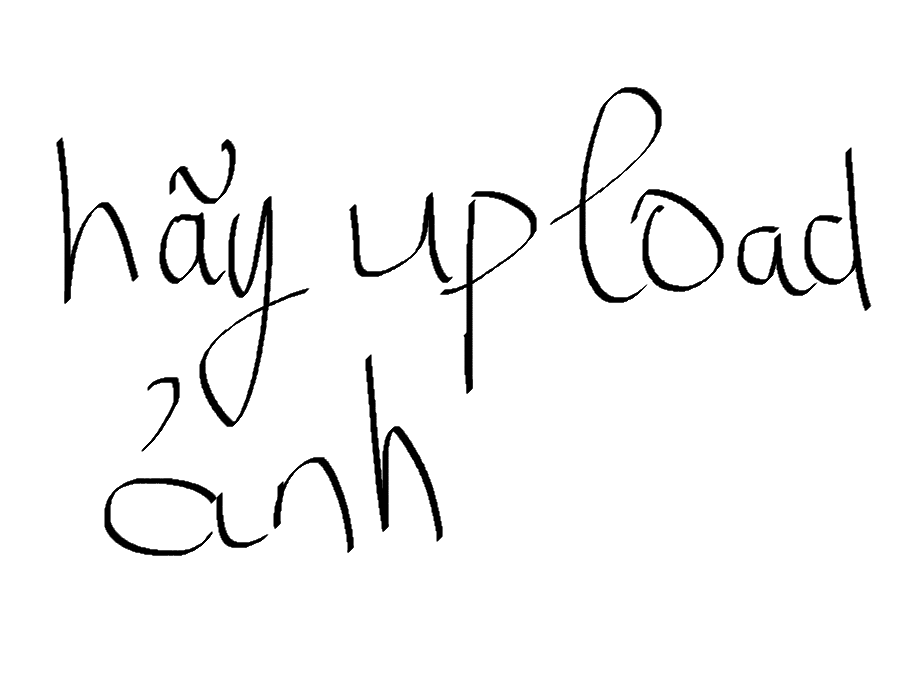 hãy upload
ảnh